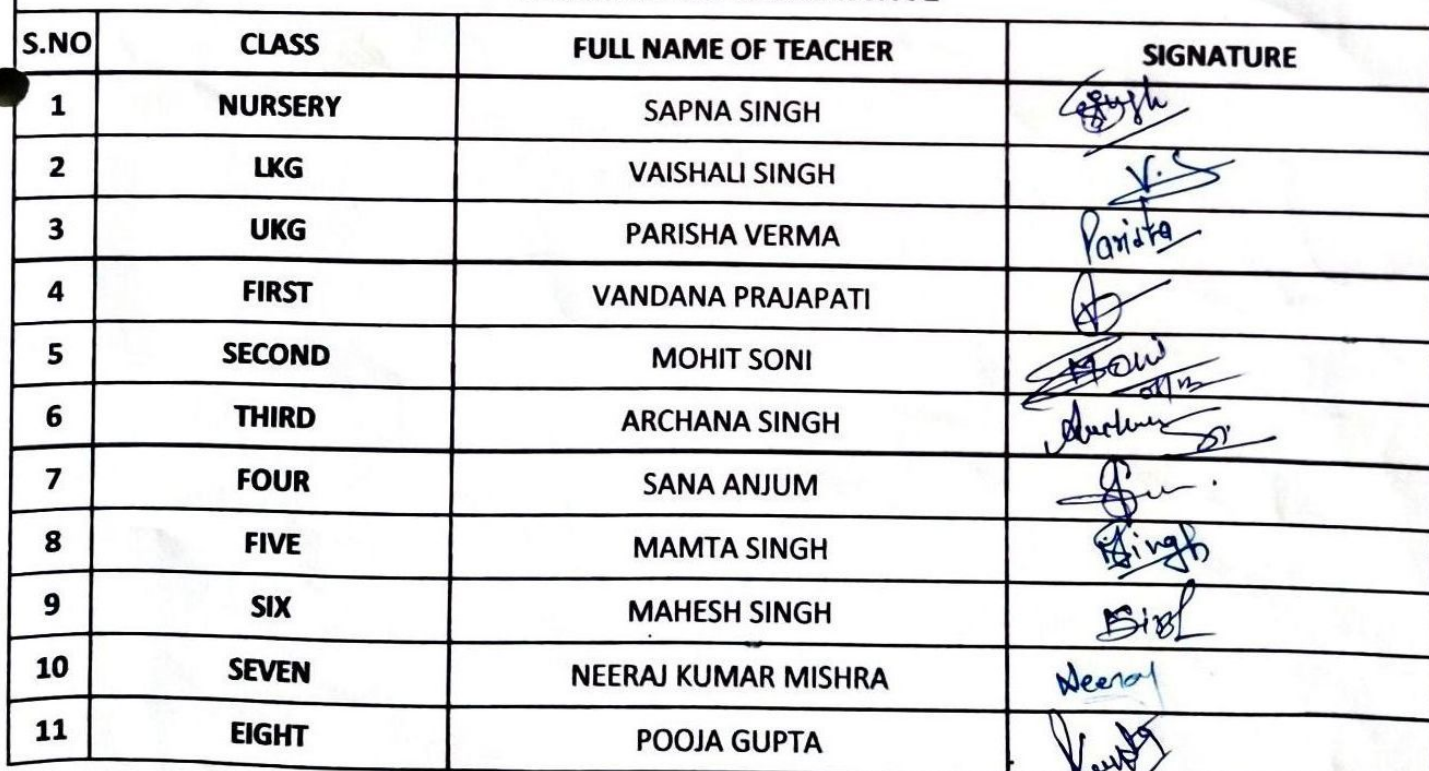 S.NO CLASS FULL NAME OF TEACHER SIGNATURE
1 NURSERY SAPNA SINGH Singh
2 LKG VAISHALI SINGH V.S
3 UKG PARISHA VERMA Parisha
4 FIRST VANDANA PRAJAPATI
5 SECOND MOHIT SONI
6 THIRD ARCHANA SINGH
7 FOUR SANA ANJUM
8 FIVE MAMTA SINGH Singh
9 SIX MAHESH SINGH
10 SEVEN NEERAJ KUMAR MISHRA Neeraj
11 EIGHT POOJA GUPTA